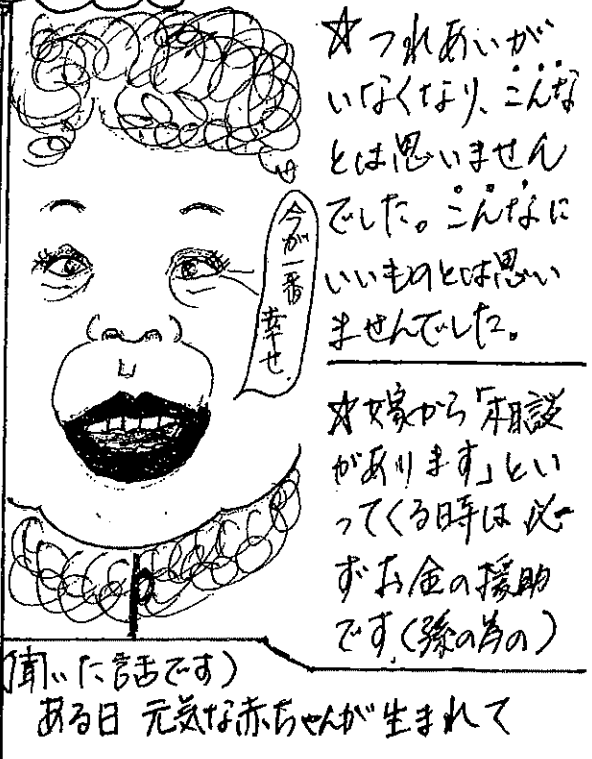 ☆つれあいが
いなくなり、こんな
とは思いません
でした。こんなに
いいものとは思い
ませんでした。
今が一番
幸せ.
☆嫁から「相談
があります」とい
ってくる時は必
ずお金の援助
です.(孫の為の)
(聞いた話です)
ある日 元気な赤ちゃんが生まれて